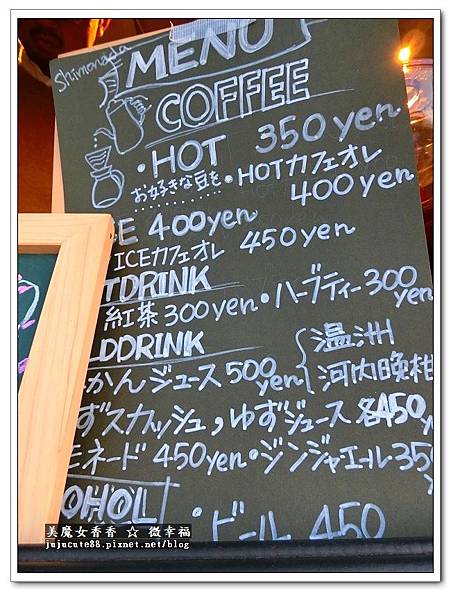 Shimonada
MENU
COFFEE
・HOT 350yen
お好きな豆を・HOTカフェオレ
400yen
E 400yen
ICEカフェオレ 450yen
TDRINK
紅茶300yen・ハーブティー300
yen
LDDRINK
かんジュース500yen
温州
河内晩柑
ずスカッシュ,ゆずジュース各450
yen
モネード450yen・ジンジャエール35
yen
OHOL
・ビール 450
美魔女香香 ☆ 微幸福
jujucute88.pixnet.net/blog